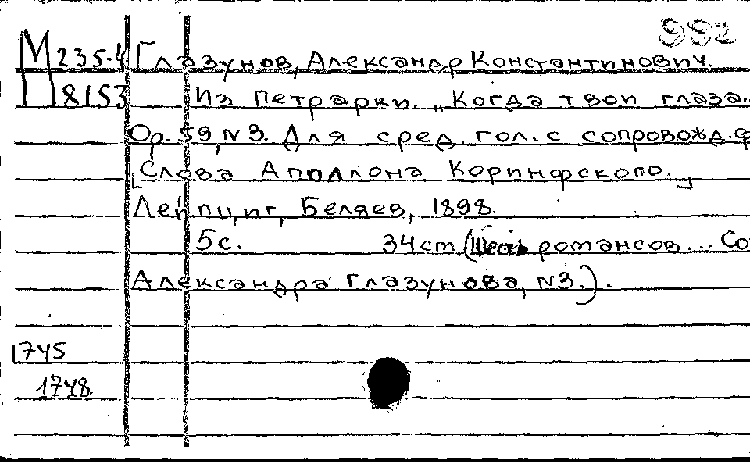 992
М 235.4 Глазунов, Александр Константинович.
П 8153 Из Петрарки. „Когда твои глаза.
Op. 59, N3. Для сред. гол. с сопровожд. ф
[Слова Аполлона Коринфского.]
Лейпциг, Беляев, 1898.
5с. 34см. (Шесть романсов... Со
Александра Глазунова, N3.).
1745
1748